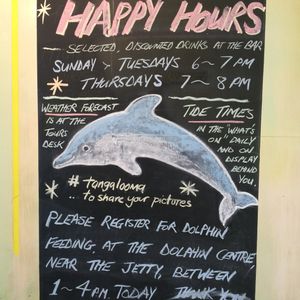 HAPPY HOURS
- SELECTED, DISCOUNTED DRINKS AT THE BAR
SUNDAY > TUESDAYS 6~7 PM
THURSDAYS 7~8 PM
WEATHER FORECAST
IS AT THE
TOURS
DESK
TIDE TIMES
IN THE "WHAT'S
ON" DAILY
AND ON
DISPLAY
BEHIND
YOU.
# tangalooma
.. to share your pictures
PLEASE REGISTER FOR DOLPHIN
FEEDING AT THE DOLPHIN CENTRE,
NEAR THE JETTY, BETWEEN
1~4 PM TODAY THANK YOU